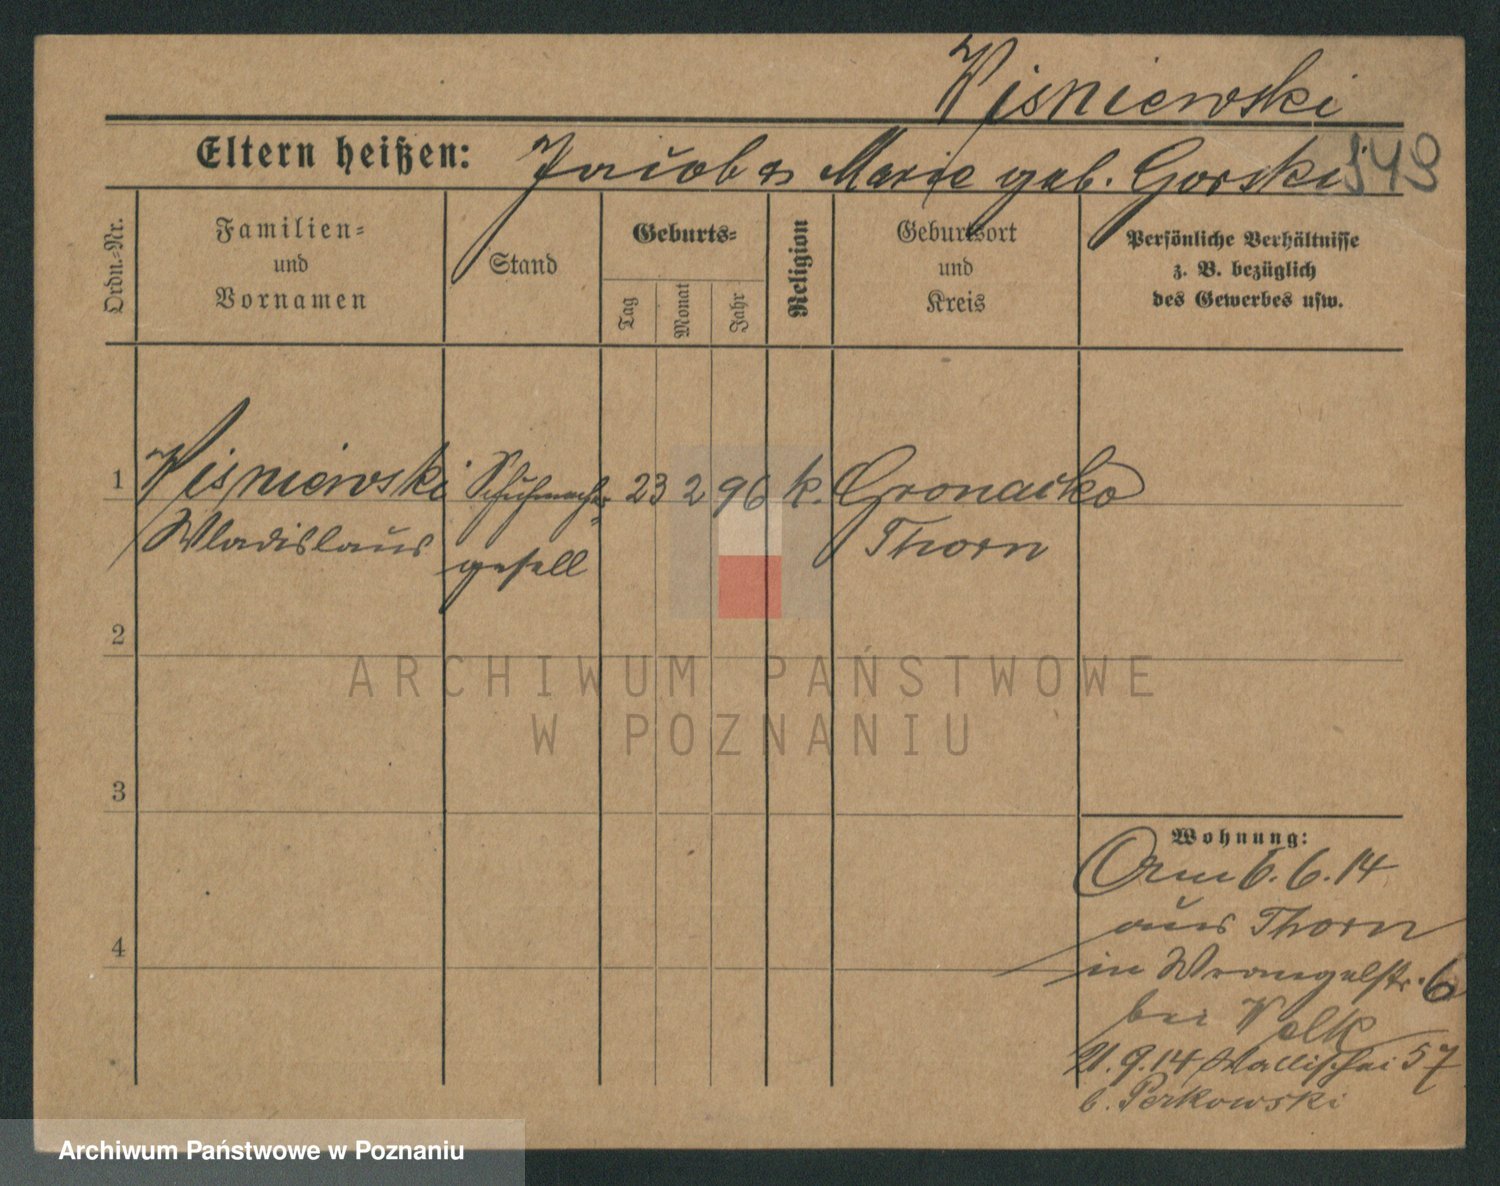 Wisniewski
Eltern heißen: Jacob & Marie geb. Gorski 549
Ordn.-Nr.
Familien-
und
Vornamen
Stand
Geburts-
Tag
Monat
Jahr
Religion
Geburtsort
und
Kreis
Persönliche Verhältnisse
z. B. bezüglich
des Gewerbes usw.
1 Wisniewski Schuhmacher 23 2 96 k. Gronacko
Wladislaus gesell Thorn
2
3
4
Wohnung:
Am 6.6.14
aus Thorn
in Wrangelstr. 6
bei Wolk
21.9.14 Wallischei 57
b. Perkowski
ARCHIWUM PAŃSTWOWE
W POZNANIU
Archiwum Państwowe w Poznaniu